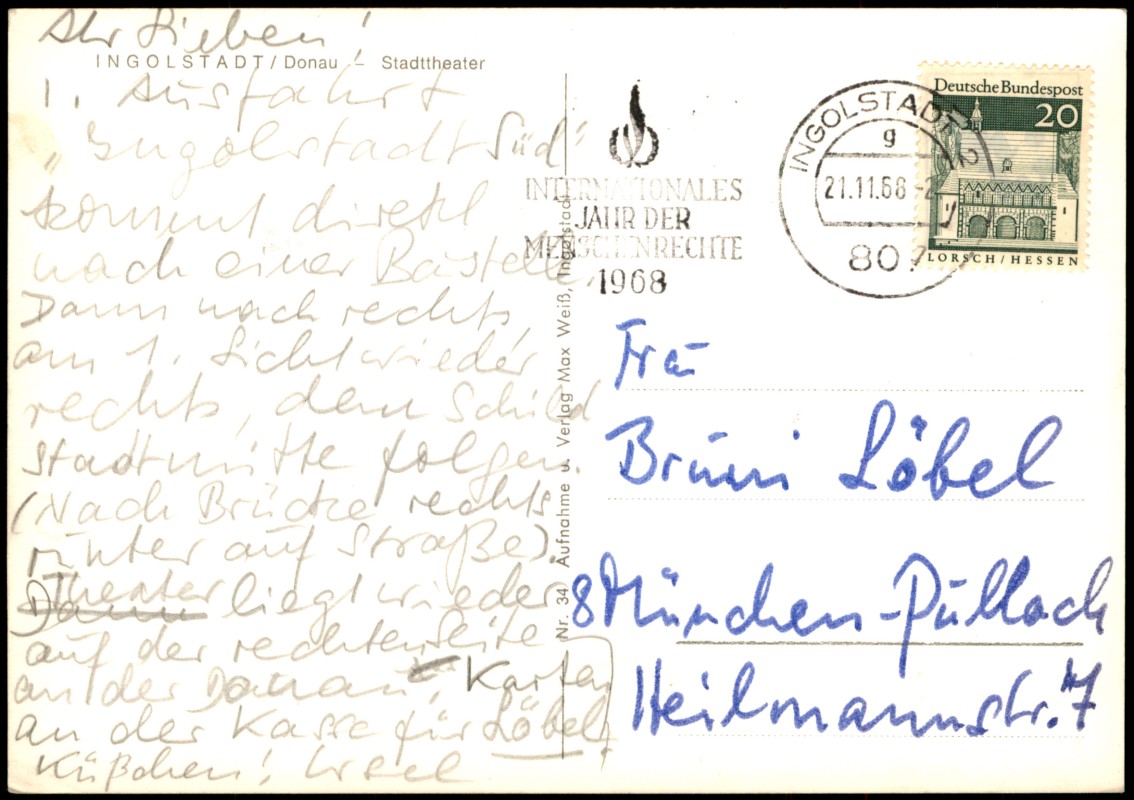 Ihr Lieben!
INGOLSTADT / Donau – Stadttheater
1. Ausfahrt
„Ingolstadt Süd"
kommt direkt
nach einer Baustelle,
Dann nach rechts,
am 1. Licht wieder
rechts, dem Schild
Stadtmitte folgen.
(Nach Brücke rechts
runter auf Straße).
Theater liegt wieder
Dann
auf der rechten Seite
an der Donau, Karten
an der Kasse für Löbel!
Küßchen! Ursel
Nr. 34 Aufnahme u. Verlag Max Weiß, Ingolstadt
INTERNATIONALES
JAHR DER
MENSCHENRECHTE
1968
INGOLSTADT 2
g
21.11.68
807
Deutsche Bundespost
20
LORSCH/HESSEN
Frau
Bruni Löbel
8 München-Pullach
Heilmannstr. 7